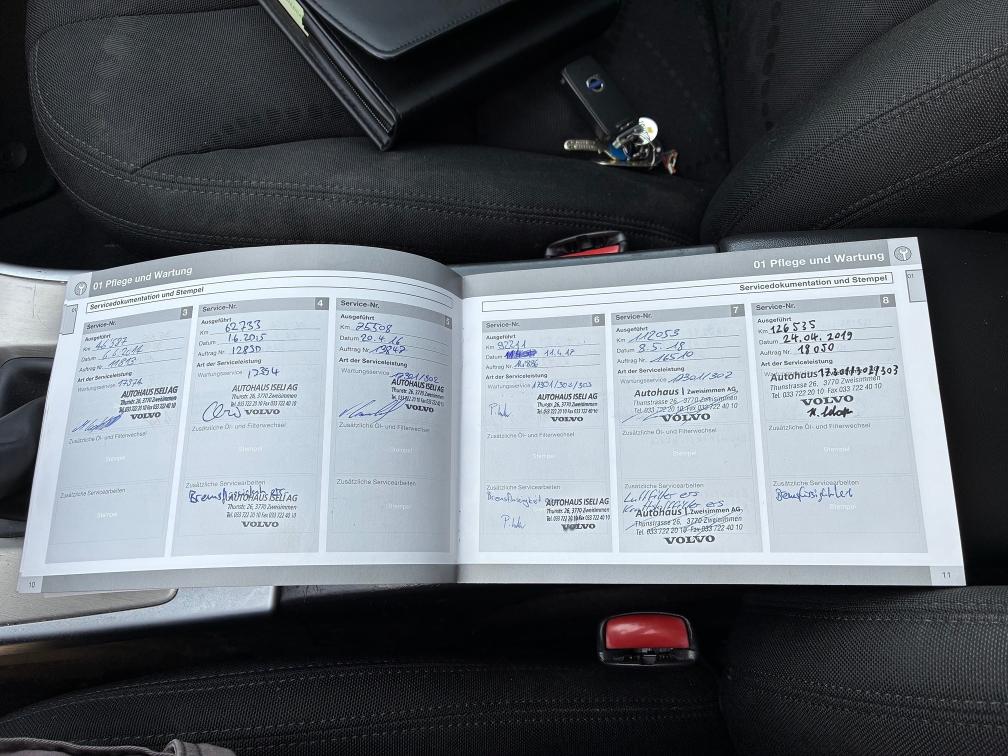 01 Pflege und Wartung
Servicedokumentation und Stempel
Service-Nr. 3
Ausgeführt
Km 46587
Datum
Auftrag Nr.
Art der Serviceleistung
Wartungsservice 17376
AUTOHAUS ISELI AG
Thunstr. 26, 3770 Zweisimmen
Tel. 033 722 20 10 Fax 033 722 40 10
VOLVO
Zusätzliche Öl- und Filterwechsel
Stempel
Zusätzliche Servicearbeiten
Stempel
Service-Nr. 4
Ausgeführt
Km 62733
Datum 1.6.2015
Auftrag Nr. 12830
Art der Serviceleistung
Wartungsservice 17354
AUTOHAUS ISELI AG
Thunstr. 26, 3770 Zweisimmen
Tel. 033 722 20 10 Fax 033 722 40 10
VOLVO
Zusätzliche Öl- und Filterwechsel
Stempel
Zusätzliche Servicearbeiten
AUTOHAUS ISELI AG
Thunstr. 26, 3770 Zweisimmen
Tel. 033 722 20 10 Fax 033 722 40 10
VOLVO
Service-Nr. 5
Ausgeführt
Km 75508
Datum 20.4.16
Auftrag Nr. 13847
Art der Serviceleistung
Wartungsservice 17301/302
AUTOHAUS ISELI AG
Thunstr. 26, 3770 Zweisimmen
Tel. 033 722 20 10 Fax 033 722 40 10
VOLVO
Zusätzliche Öl- und Filterwechsel
Stempel
Zusätzliche Servicearbeiten
Stempel
10
01 Pflege und Wartung
01
Servicedokumentation und Stempel
Service-Nr. 6
Ausgeführt
Km 92211
Datum 11.4.17
Auftrag Nr.
Art der Serviceleistung
Wartungsservice 17301/302/303
AUTOHAUS ISELI AG
Thunstr. 26, 3770 Zweisimmen
Tel. 033 722 20 10 Fax 033 722 40 10
VOLVO
Zusätzliche Öl- und Filterwechsel
Stempel
Zusätzliche Servicearbeiten
AUTOHAUS ISELI AG
Thunstr. 26, 3770 Zweisimmen
Tel. 033 722 20 10 Fax 033 722 40 10
VOLVO
Service-Nr. 7
Ausgeführt
Km 112053
Datum 8.5.18
Auftrag Nr. 16510
Art der Serviceleistung
Wartungsservice 17301/302
Autohaus Zweisimmen AG
Thunstrasse 26, 3770 Zweisimmen
Tel. 033 722 20 10 Fax 033 722 40 10
VOLVO
Zusätzliche Öl- und Filterwechsel
Stempel
Zusätzliche Servicearbeiten
Luftfilter ers
Kraftstofffilter ers
Autohaus Zweisimmen AG
Thunstrasse 26, 3770 Zweisimmen
Tel. 033 722 20 10 Fax 033 722 40 10
VOLVO
Service-Nr. 8
Ausgeführt
Km 126535
Datum 24.04.2019
Auftrag Nr. 18050
Art der Serviceleistung
Wartungsservice
Autohaus
Thunstrasse 26, 3770 Zweisimmen
Tel. 033 722 20 10 Fax 033 722 40 10
VOLVO
Zusätzliche Öl- und Filterwechsel
Stempel
Zusätzliche Servicearbeiten
Stempel
11